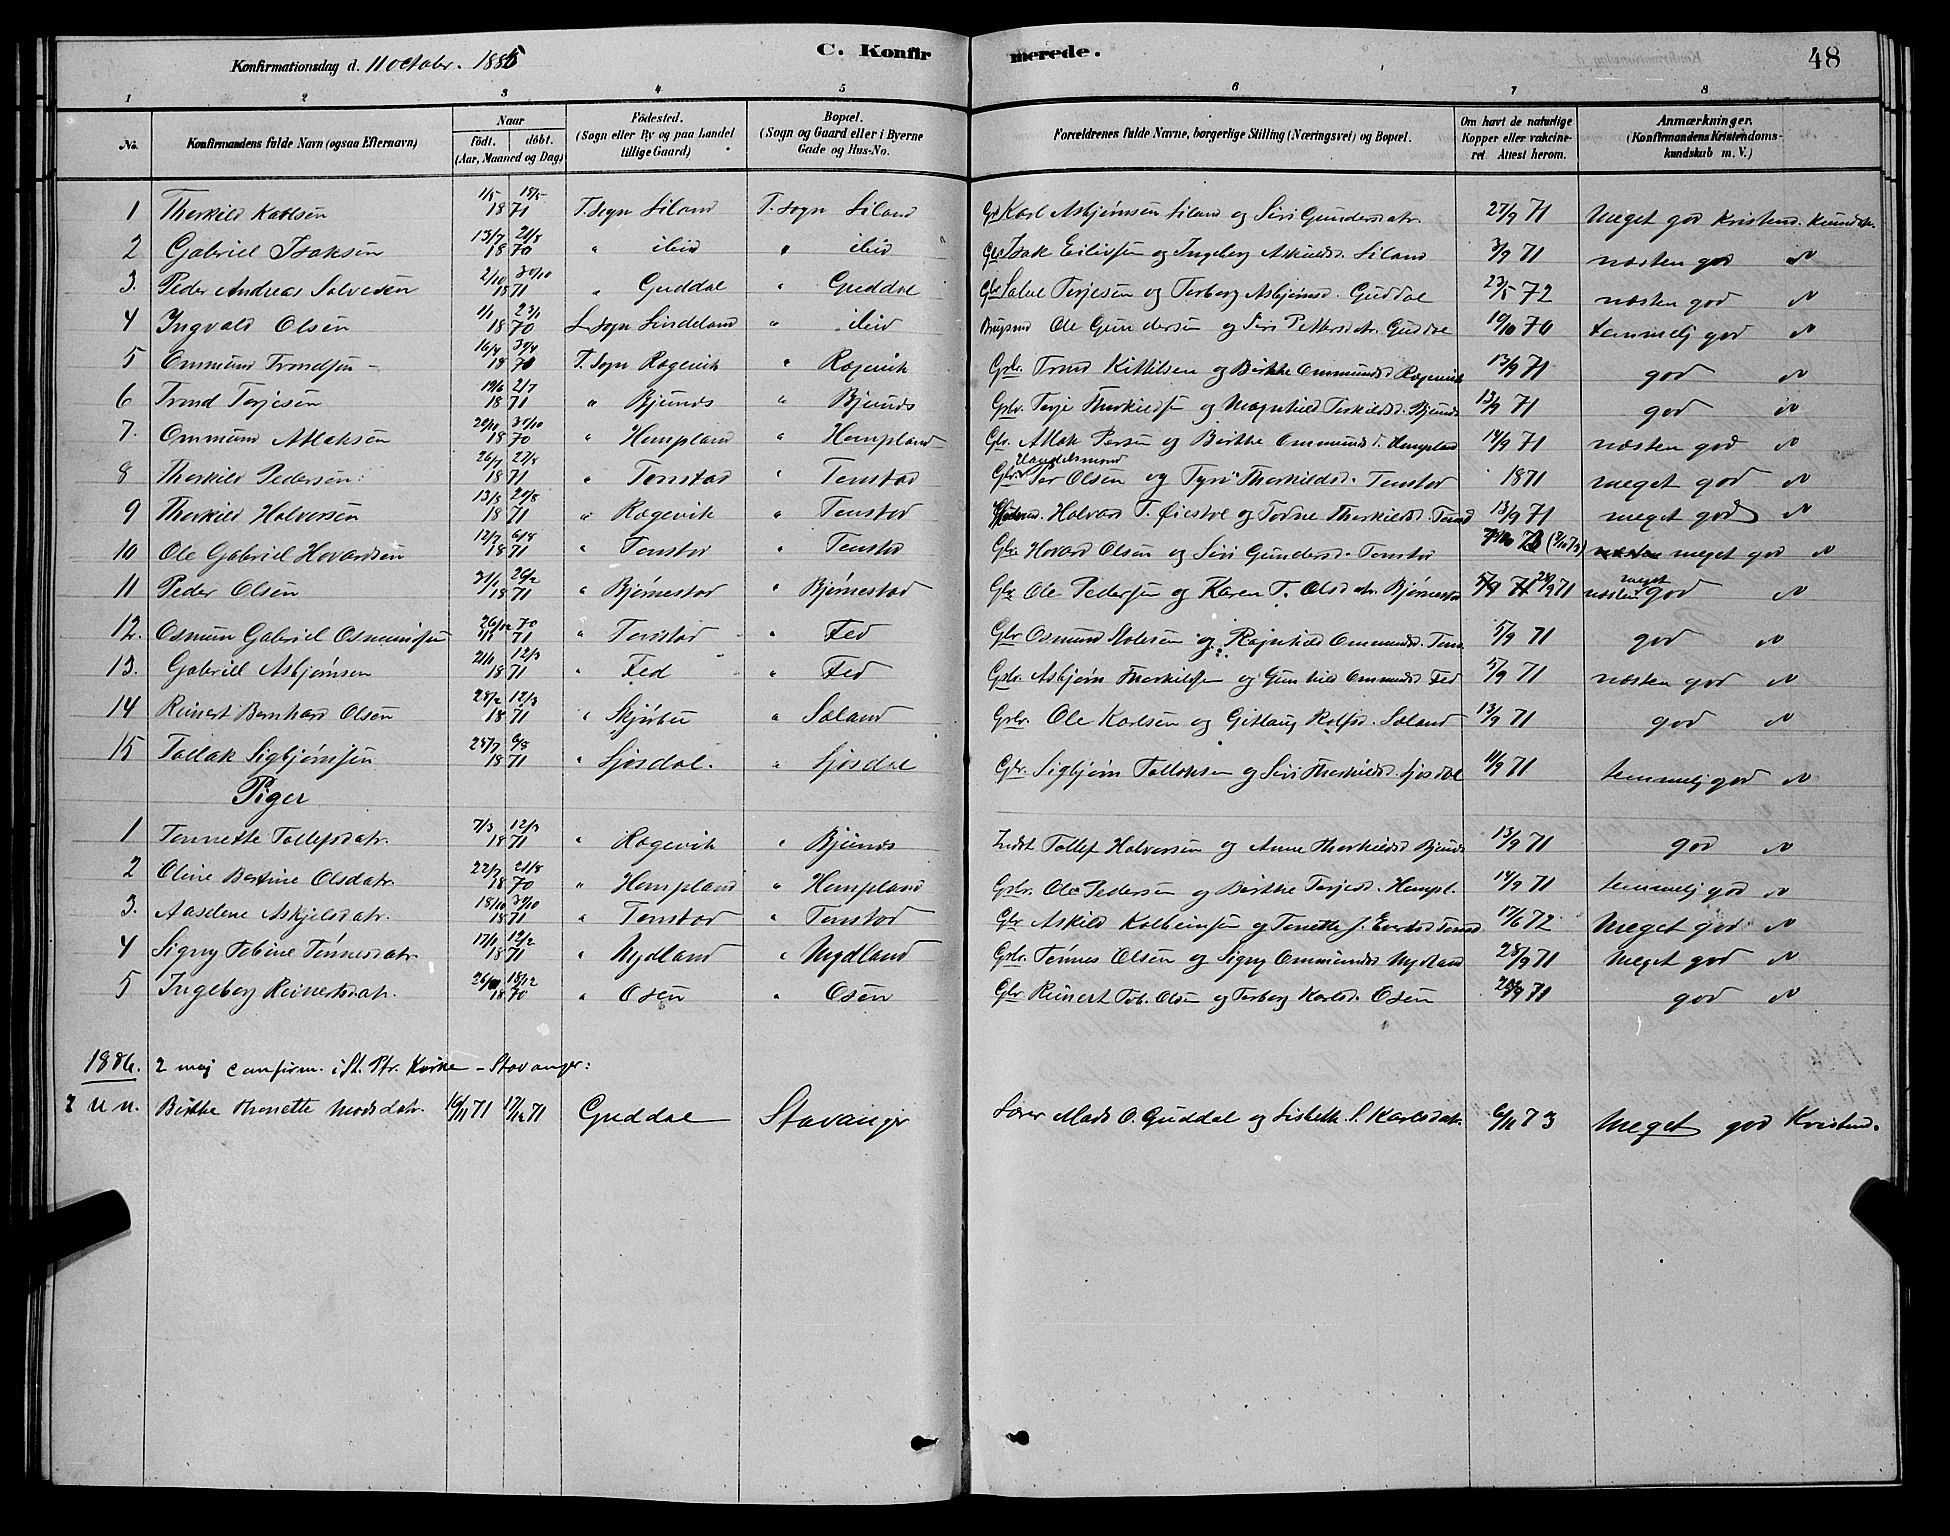 Konfirmationsdag d. 11 octobr. 1885 C. Konfirmerede. 48
1 2 3 4 5 6 7 8
No. Konfirmandens fulde Navn (ogsaa Efternavn) Naar født. døbt. (Aar, Maaned og Dag) Fødested. (Sogn eller By og paa Landet tillige Gaard) Bopæl. (Sogn og Gaard eller i Byerne Gade og Hus-No. Forældrenes fulde Navne, borgerlige Stilling (Næringsvei) og Bopæl. Om havt de naturlige Kopper eller vakcineret Attest herom. Anmærkninger. (Konfirmandens Kristendomskundskab m. V.)
1 Therkild Karlsen 1/5 18/5 1871 T. Sogn Siland T. Sogn Siland Gbr Karl Asbjørnsen Siland og Siri Gundersdatr. 27/9 71 Meget god Kristend. Kundsk.
2 Gabriel Isaksen 13/7 21/8 1870 " ibid " ibid Gbr Isak Eilivsen og Ingeborg Askildsd. Siland 3/9 71 næsten god "
3. Peder Andreas Salvesen 2/10 30/10 1871 " Guddal " Guddal Gbr Salve Terjesen og Torborg Asbjørnsd. Guddal 23/5 72 næsten god "
4 Ingvald Olsen 1/1 23/1 1870 L. Sogn Lindeland " ibid Brugsmd Ole Gundersen og Siri Pettersdatr. Guddal 19/10 70 temmelig god "
5 Ommund Trondsen 16/4 30/4 1870 T. Sogn Røgevik " Røgevik Gbr. Trond Kittilsen og Birthe Ommundsd Røgevik 13/9 71 god "
6 Trond Terjesen 19/6 2/7 1871 " Bjunds " Bjunds Gbr. Terje Therkildsen og Magnhild Terkildsd. Bjunds 13/9 71 god "
7. Ommund Atlaksen 1870 " Hompland " Hompland Gbr. Atlak Persen og Birthe Ommundsd. Hompland 14/9 71 næsten god "
8 Therkild Pedersen 26/7 27/8 1871 " Tonstad " Tonstad Handelsmand Gbr. Per Olsen og Tyri Therkildsd. Tonstad 1871 meget god "
9 Therkild Halvorsen 13/8 20/8 1871 " Røgevik " Tonstad Halvard T. Øiestol og Todne Therkildsd. Tonst 13/9 71 meget god "
10 Ole Gabriel Hovardsen 12/7 6/8 1871 " Tonstad " Tonstad Gbr. Hovard Olsen og Siri Gundersd. Tonstad meget god "
11 Peder Olsen 31/1 26/2 1871 " Bjørnestad " Bjørnestad Gbr Ole Pedersen og Karen T. Olsdatr. Bjørnestad 28/9 71 meget god "
12. Osmun Gabriel Osmundsen 26/12 70 71 " Tonstad " Fed Gbr Osmund Stolesen og Ragnhild Ommundsd. Tons. 5/9 71 god "
13. Gabriel Asbjørnsen 21/1 12/3 1871 " Fed " Fed Gbr. Asbjørn Therkildsen og Gunhild Ommundsd Fed 5/9 71 næsten god "
14 Reinert Bernhard Olsen 28/2 12/3 1871 " Skjørbu " Saland Gbr. Ole Karlsen og Gitlaug Rolfsd. Saland 13/9 71 god "
15 Tallak Sigbjørnsen 25/7 6/8 1871 " Sjosdal. " Sjosdal Gbr. Sigbjørn Tallaksen og Siri Therkildsd. Sjosdal 11/9 71 temmelig god "
Piger
1 Tonnette Tollefsdatr. 7/3 12/3 1871 " Røgevik " Bjunds Indst Tollef Halvorsen og Anne Therkildsd Bjunds 13/9 71 god "
2 Oline Bertine Olsdatr. 22/7 21/8 1870 " Hompland " Hompland Gbr. Ole Pedersen og Birthe Terjesd. Hompl. 14/9 71 temmelig god "
3. Aaselene Askjelsdatr. 18/10 30/10 1871 " Tonstad " Tonstad Gbr Askild Kolbeinsen og Tonette J. Evertsd Tonsd 17/6 72 Meget god "
4 Signy Tobine Tønnesdatr. 17/1 12/2 1871 " Nydland " Nydland Gbr. Tønnes Olsen og Signy Ommundsd Nydland 28/9 71 Meget god "
5 Ingeborg Reinertsdatr. 18/12 1870 " Osen " Osen Gbr Reinert Tob. Olsen og Torborg Karlsd. Osen 71 god "
1886. 2 maj confirm. i St. Ptr. Kirke – Stavanger:
Birthe Thonette Madsdatr. 16/11 71 17/12 71 Guddal Stavanger Lærer Mads O. Guddal og Lisbeth S. Karlsdatr. 6/11 73 Meget god Kristend.